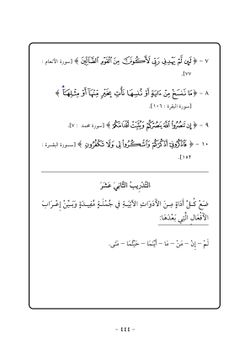 ٧ - ﴿ لَئِن لَّمْ يَهْدِنِي رَبِّي لَأَكُونَنَّ مِنَ الْقَوْمِ الضَّالِّينَ ﴾ [سورة الأنعام :
٧٧].
٨ - ﴿ مَا نَنسَخْ مِنْ آيَةٍ أَوْ نُنسِهَا نَأْتِ بِخَيْرٍ مِّنْهَا أَوْ مِثْلِهَا ﴾
[سورة البقرة : ١٠٦].
٩ - ﴿ إِن تَنصُرُوا اللَّهَ يَنصُرْكُمْ وَيُثَبِّتْ أَقْدَامَكُمْ ﴾ [سورة محمد : ٧].
١٠ - ﴿ فَاذْكُرُونِي أَذْكُرْكُمْ وَاشْكُرُوا لِي وَلَا تَكْفُرُونِ ﴾ [سورة البقرة :
١٥٢].
التَّدْرِيبُ الثَّانِيَ عَشَرَ
ضَعْ كُلَّ أَدَاةٍ مِنَ الْأَدَوَاتِ الْآتِيَةِ فِي جُمْلَةٍ مُفِيدَةٍ وَبَيِّنْ إِعْرَابَ
الْأَفْعَالِ الَّتِي بَعْدَهَا:
لَمْ – إِنْ – مَنْ – مَا – أَيْنَمَا – حَيْثُمَا – مَتَى.
- ٤٤٤ -